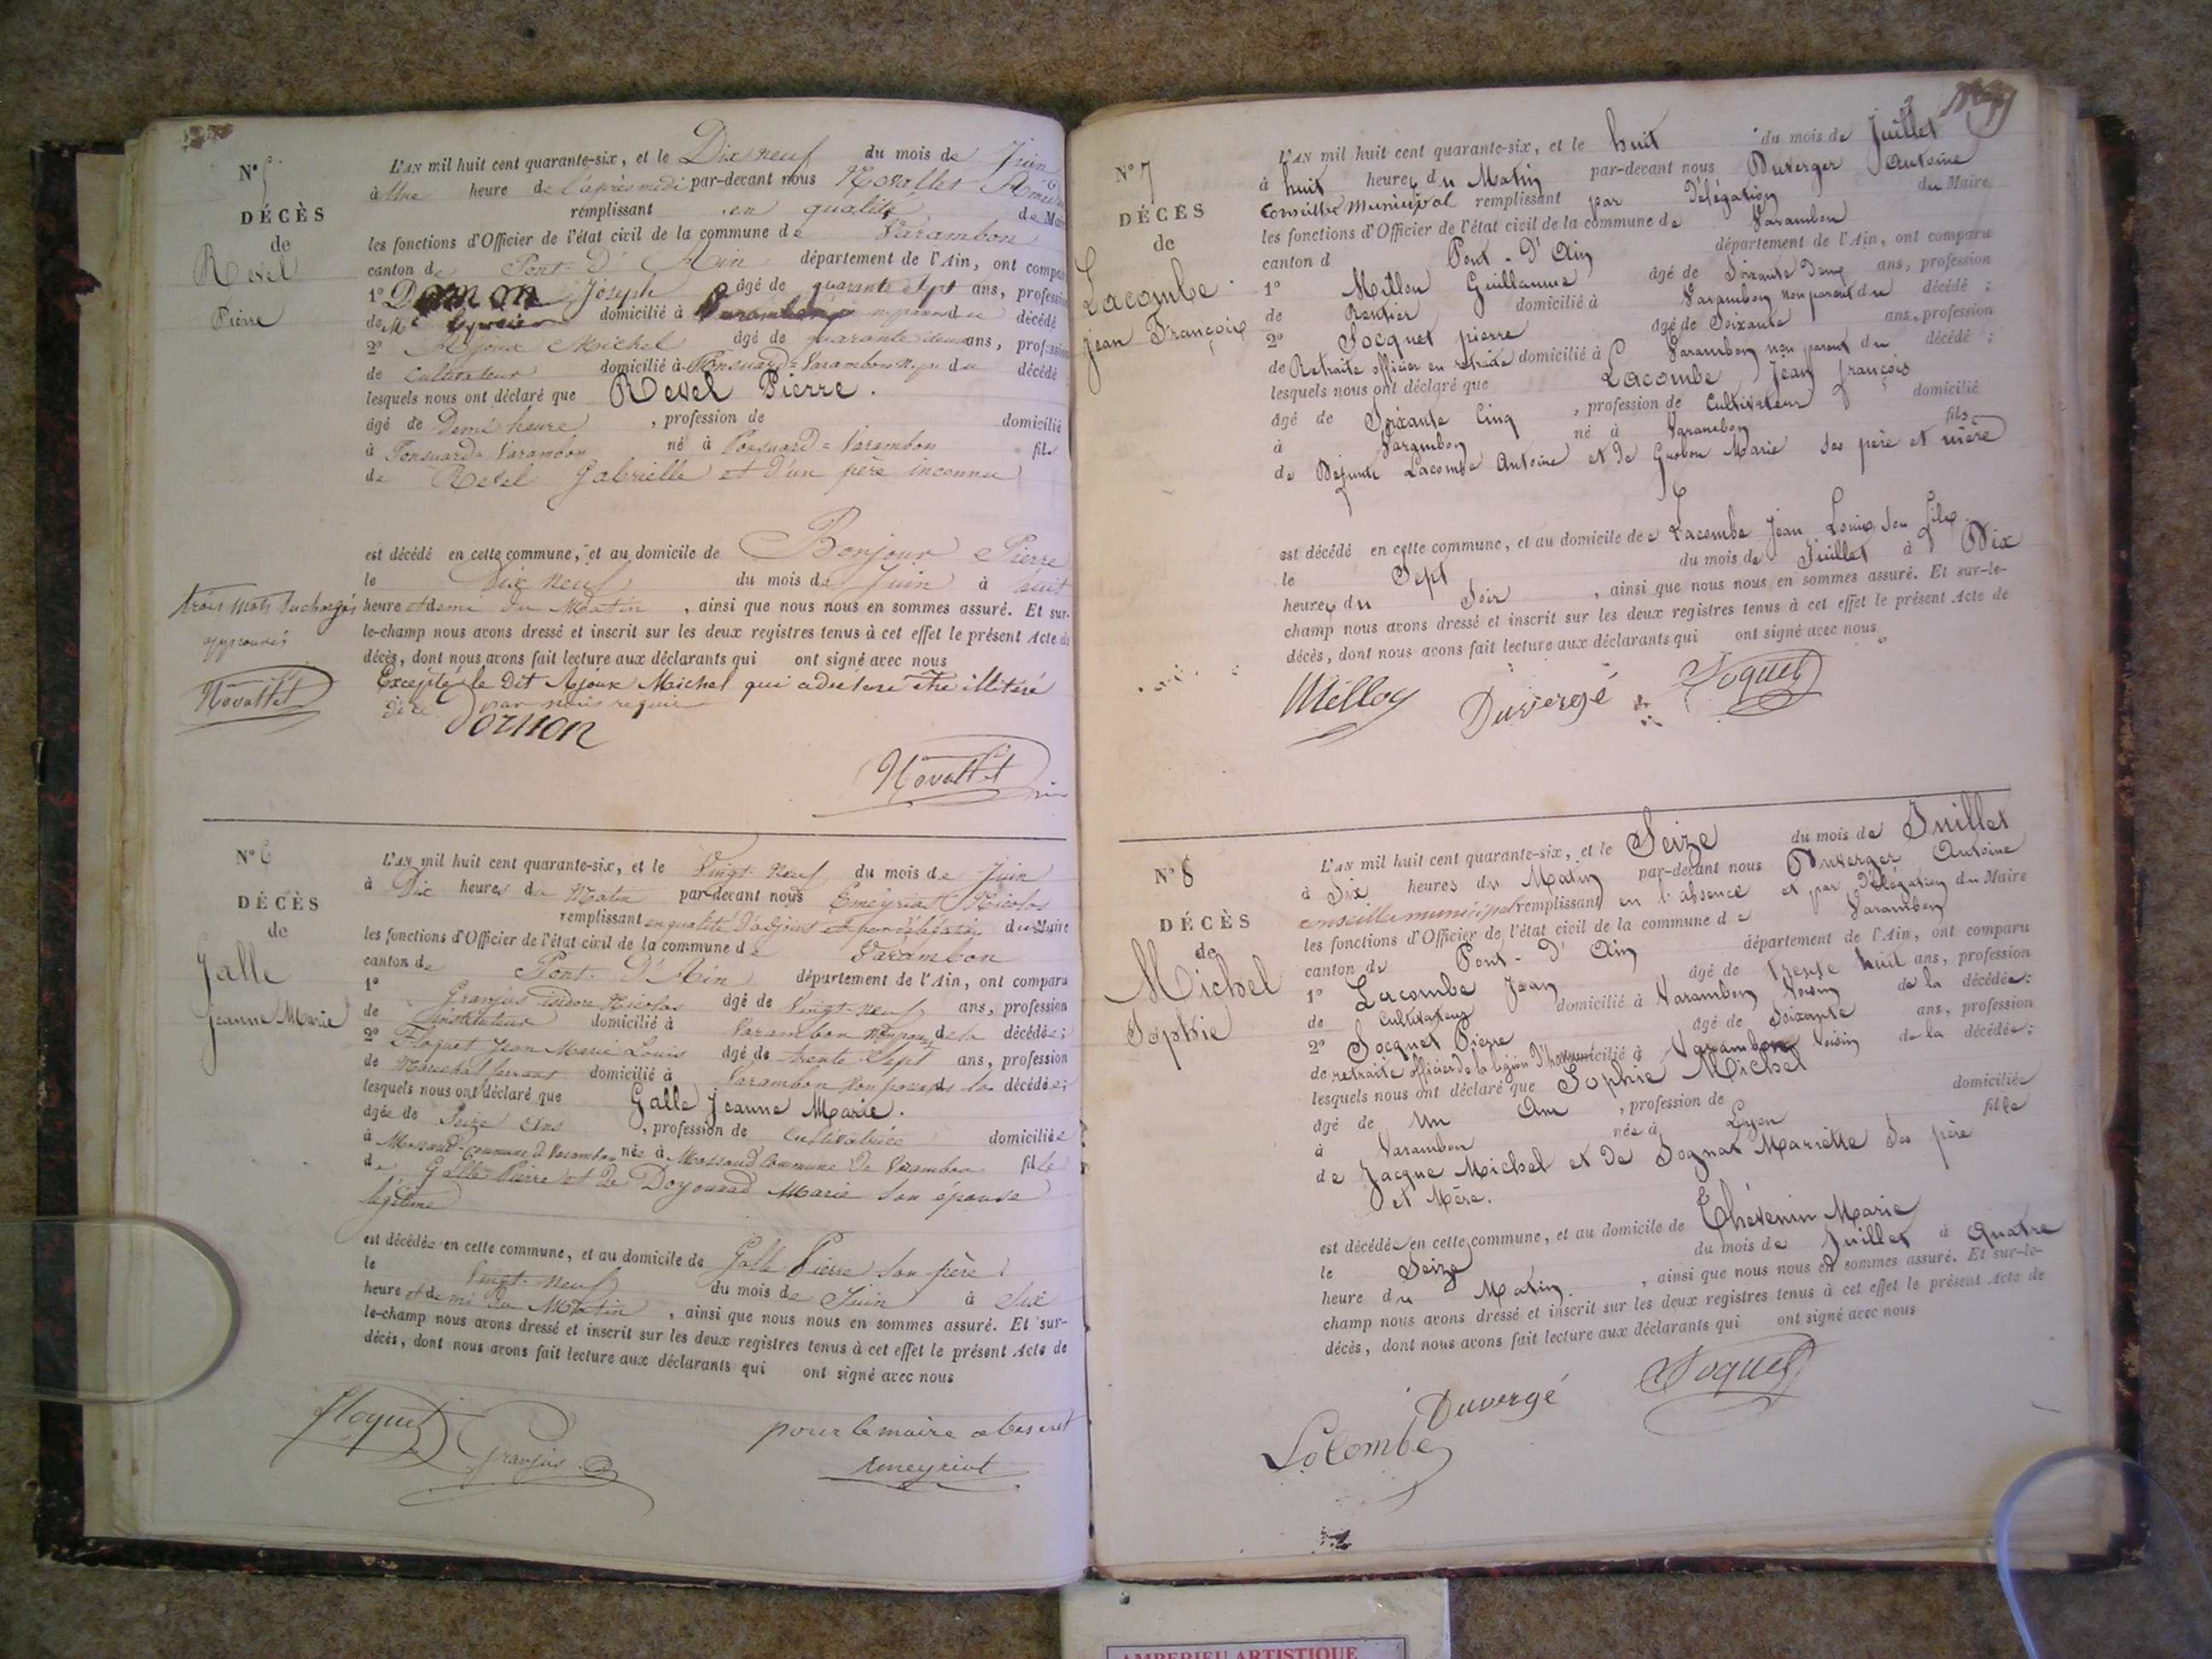 N° 5
DÉCÈS
de
Revel
Pierre
L'AN mil huit cent quarante-six, et le Dix neuf du mois de Juin
à Une heure de l'après midi par-devant nous
remplissant en qualité de
les fonctions d'Officier de l'état civil de la commune de Varambon
canton de Pont-d'Ain département de l'Ain, ont
1° Joseph âgé de quarante Sept ans,
domicilié à décédé
2° Ajoux Michel âgé de quarante deux ans,
de Cultivateur domicilié à décédé
lesquels nous ont déclaré que Revel Pierre.
âgé de Demi heure , profession de domicilié
à né à fils
de Revel Gabrielle et d'un père inconnu
est décédé en cette commune, et au domicile de Bonjour Pierre
le Dix neuf du mois de Juin à huit
heure et demi du Matin , ainsi que nous nous en sommes assuré. Et sur-
le-champ nous avons dressé et inscrit sur les deux registres tenus à cet effet le présent Acte de
décès, dont nous avons fait lecture aux déclarants qui ont signé avec nous
Excepté le Dit Ajoux Michel qui a déclaré être illitéré
de ce par nous requis
trois mots surchargés
approuvés
Dornon
N° 6
DÉCÈS
de
Galle
Jeanne Marie
L'AN mil huit cent quarante-six, et le Vingt-Neuf du mois de Juin
à Dix heures du Matin par-devant nous Emeyriat Nicolas
remplissant en qualité d'adjoint et par délégation du Maire
les fonctions d'Officier de l'état civil de la commune de Varambon
canton de Pont-D'Ain département de l'Ain, ont comparu
1° Granjus isidore Nicolas âgé de Vingt-Neuf ans, profession
de instituteur domicilié à Varambon de la décédée;
2° Floquet Jean Marie Louis âgé de trente Sept ans, profession
de Maréchal ferrant domicilié à Varambon non parent de la décédée;
lesquels nous ont déclaré que Galle Jeanne Marie.
âgée de Seize Ans , profession de Cultivatrice domiciliée
à Commune de Varambon née à Commune de Varambon fille
de Galle Pierre et de Marie Son épouse
légitime
est décédée en cette commune, et au domicile de Galle Pierre Son père
le Vingt-Neuf du mois de Juin à Six
heure et demi du Matin , ainsi que nous nous en sommes assuré. Et sur-
le-champ nous avons dressé et inscrit sur les deux registres tenus à cet effet le présent Acte de
décès, dont nous avons fait lecture aux déclarants qui ont signé avec nous
floquet
Granjus
pour le maire absent
Emeyriat
N° 7
DÉCÈS
de
Lacombe
Jean François
L'AN mil huit cent quarante-six, et le huit du mois de Juillet
à huit heures du Matin par-devant nous Duverger Antoine
Conseiller Municipal remplissant par Délégation du Maire
les fonctions d'Officier de l'état civil de la commune de Varambon
canton d Pont-D'Ain département de l'Ain, ont comparu
1° Millon Guillaume âgé de Soixante Deux ans, profession
de Rentier domicilié à Varambon non parent du décédé;
2° Socquet pierre âgé de Soixante ans, profession
de Retraite officier en retraite domicilié à Varambon non parent du décédé;
lesquels nous ont déclaré que Lacombe Jean françois
âgé de Soixante Cinq , profession de Cultivateur domicilié
à Varambon né à Varambon fils
de Défunts Lacombe Antoine et de Marie Ses père et mère
est décédé en cette commune, et au domicile de Lacombe Jean Louis Son fils
le Sept du mois de Juillet à Dix
heures du Soir , ainsi que nous nous en sommes assuré. Et sur-le-
champ nous avons dressé et inscrit sur les deux registres tenus à cet effet le présent Acte de
décès, dont nous avons fait lecture aux déclarants qui ont signé avec nous
Duvergé
Soquet
N° 8
DÉCÈS
de
Michel
Sophie
L'AN mil huit cent quarante-six, et le Seize du mois de Juillet
à Six heures du Matin par-devant nous Duverger Antoine
conseiller municipal remplissant en l'absence et par Délégation du Maire
les fonctions d'Officier de l'état civil de la commune de Varambon
canton de Pont-D'Ain département de l'Ain, ont comparu
1° Lacombe Jean âgé de trente huit ans, profession
de Cultivateur domicilié à Varambon Voisin de la décédée;
2° Socquet Pierre âgé de Soixante ans, profession
de retraité officier de la légion D'honneur domicilié à Varambon Voisin de la décédée;
lesquels nous ont déclaré que Sophie Michel
âgé de Un An , profession de domiciliée
à Varambon née à Lyon fille
de Jacque Michel et de Mariette Ses père
et Mère.
est décédée en cette commune, et au domicile de Thévenin Marie
le Seize du mois de Juillet à Quatre
heure du Matin. , ainsi que nous nous en sommes assuré. Et sur-le-
champ nous avons dressé et inscrit sur les deux registres tenus à cet effet le présent Acte de
décès, dont nous avons fait lecture aux déclarants qui ont signé avec nous
Duvergé
Soquet
AMBERIEU ARTISTIQUE